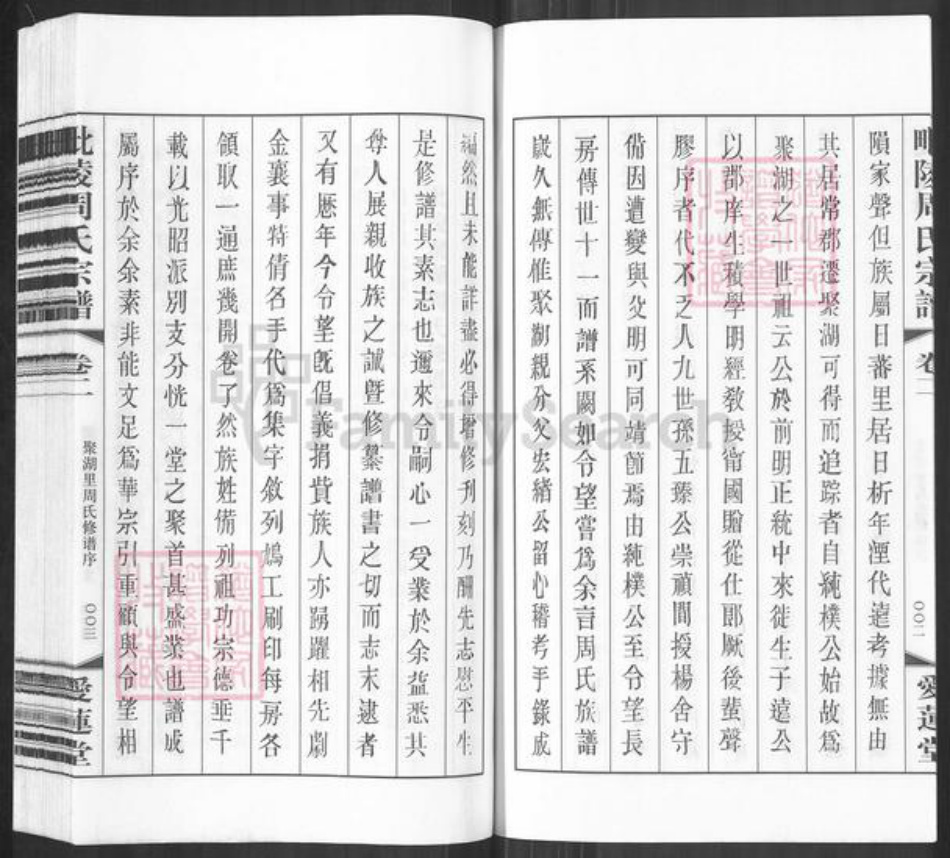 毗陵周氏宗譜
卷二
〇〇二
愛蓮堂
隕家聲但族屬日蕃里居日析年湮代遠考據無由
其居常郡遷聚湖可得而追踪者自純樸公始故為
聚湖之一世祖云公於前明正統中來徙生子遠公
以郡庠生積學明經教授甯國贈從仕郎厥後蜚聲
膠序者代不乏人九世孫五臻公崇禎間授楊舍守
備因遭變與父明可同靖節焉由純樸公至令望長
房傳世十一而譜系闕如令望嘗為余言周氏族譜
歲久無傳惟聚湖親分父宏緒公留心稽考手錄成
編然且未能詳盡必得增修刊刻乃酬先志慰平生
是修譜其素志也邇來令嗣心一受業於余益悉其
尊人展親收族之誠暨修纂譜書之切而志未逮者
又有歷年今令望旣倡義捐貲族人亦踴躍相先劇
金襄事特倩名手代為集字敘列鳩工刷印每房各
領取一通庶幾開卷了然族姓備列祖功宗德垂千
載以光昭派別支分恍一堂之聚首甚盛業也譜成
屬序於余余素非能文足為華宗引重顧與令望相
毗陵周氏宗譜
卷二
聚湖里周氏修谱序
〇〇三
愛蓮堂
FamilySearch